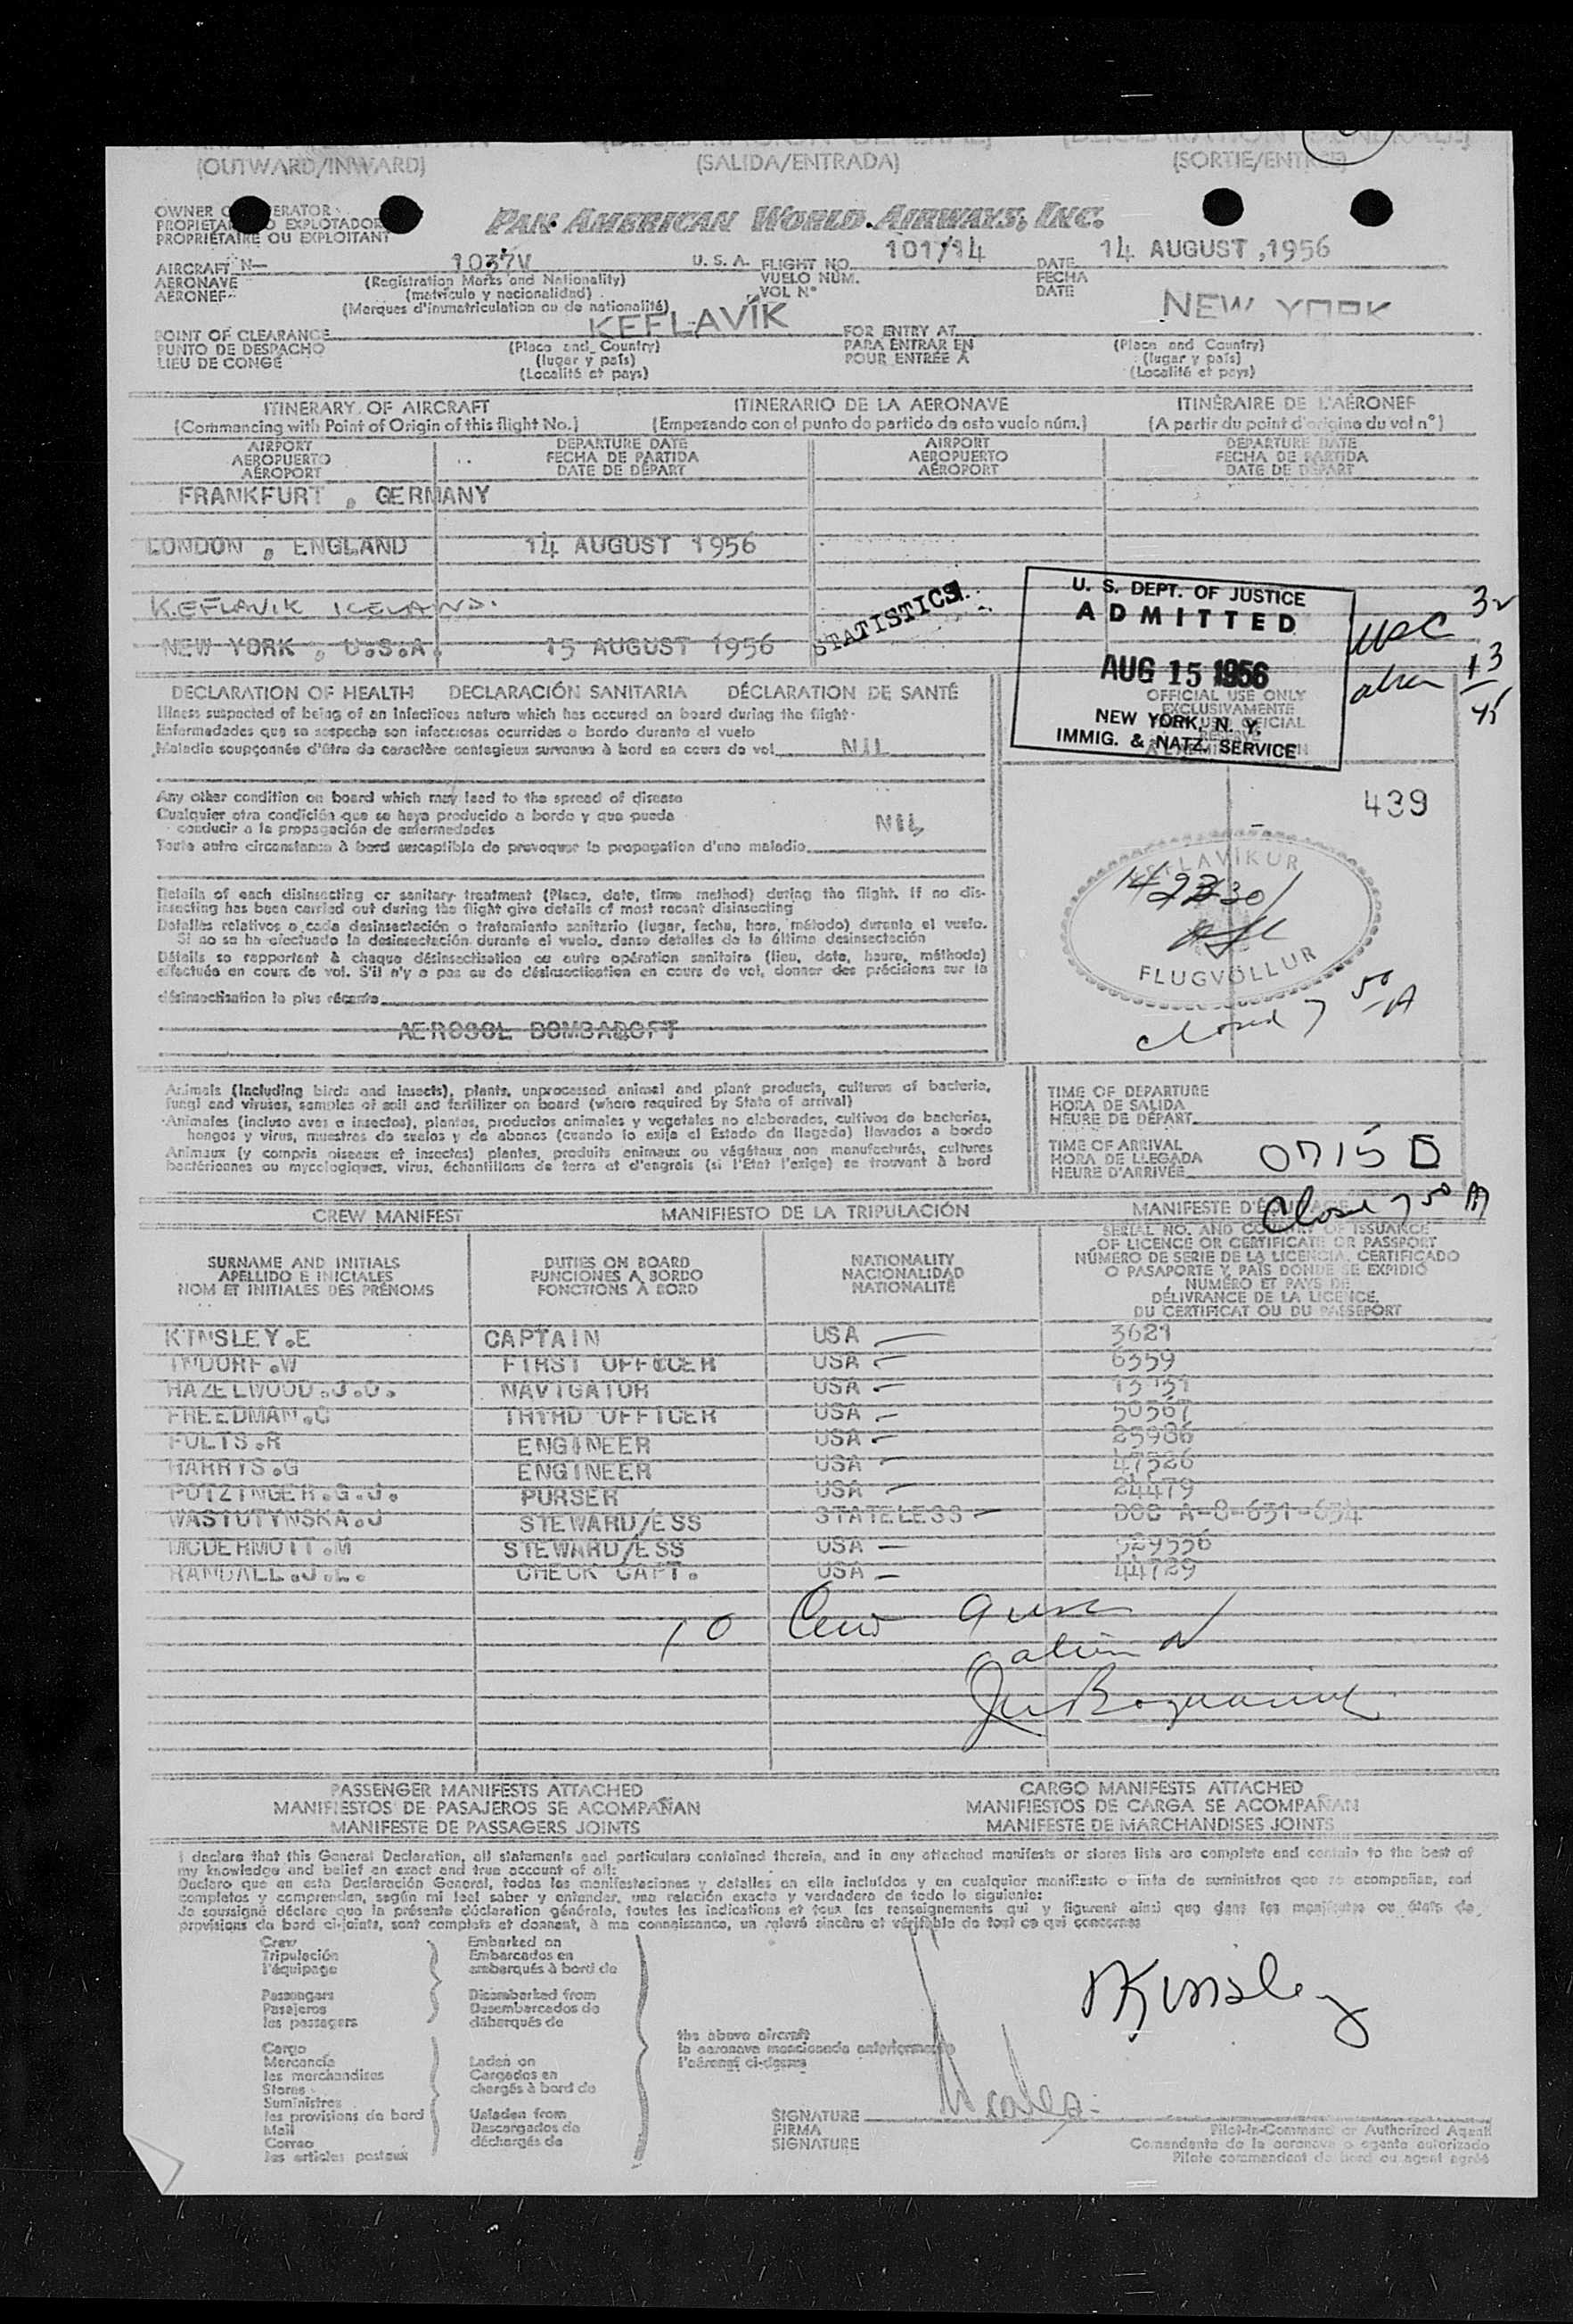 (OUTWARD/INWARD) (SALIDA/ENTRADA) (SORTIE/ENTRÉE)
OWNER O ERATOR
PROPIETAR O EXPLOTADOR
PROPRIÉTAIRE OU EXPLOITANT
PAN AMERICAN WORLD AIRWAYS, INC.
AIRCRAFT N— 1037V U. S. A. FLIGHT NO. 101/14 DATE 14 AUGUST ,1956
AERONAVE (Registration Marks and Nationality) VUELO NÚM. FECHA
AÉRONEF (matrícula y nacionalidad) VOL N° DATE
(Marques d'immatriculation ou de nationalité)
POINT OF CLEARANCE KEFLAVÍK FOR ENTRY AT NEW YORK
PUNTO DE DESPACHO (Place and Country) PARA ENTRAR EN (Place and Country)
LIEU DE CONGÉ (lugar y país) POUR ENTRÉE À (lugar y país)
(Localité et pays) (Localité et pays)
ITINERARY OF AIRCRAFT ITINERARIO DE LA AERONAVE ITINÉRAIRE DE L'AÉRONEF
(Commencing with Point of Origin of this flight No.) (Empezando con el punto de partida de este vuelo núm.) (A partir du point d'origine du vol n°)
AIRPORT DEPARTURE DATE AIRPORT DEPARTURE DATE
AEROPUERTO FECHA DE PARTIDA AEROPUERTO FECHA DE PARTIDA
AÉROPORT DATE DE DÉPART AÉROPORT DATE DE DÉPART
FRANKFURT , GERMANY
LONDON , ENGLAND 14 AUGUST 1956
KEFLAVIK ICELAND.
NEW YORK , U.S.A. 15 AUGUST 1956
STATISTICS
U. S. DEPT. OF JUSTICE
ADMITTED
AUG 15 1956
NEW YORK, N. Y.
IMMIG. & NATZ. SERVICE
USC 32
alien 13
45
OFFICIAL USE ONLY
EXCLUSIVAMENTE
DECLARATION OF HEALTH DECLARACIÓN SANITARIA DÉCLARATION DE SANTÉ
Illness suspected of being of an infectious nature which has occured on board during the flight
Enfermedades que se sospecha son infecciosas ocurridas a bordo durante el vuelo
Maladie soupçonnée d'être de caractère contagieux survenue à bord en cours de vol NIL
Any other condition on board which may lead to the spread of disease
Cualquier otra condición que se haya producido a bordo y que pueda
conducir a la propagación de enfermedades NIL
Toute autre circonstance à bord susceptible de provoquer la propagation d'une maladie
439
Details of each disinsecting or sanitary treatment (Place, date, time method) during the flight. If no dis-
insecting has been carried out during the flight give details of most recent disinsecting
Detalles relativos a cada desinsectación o tratamiento sanitario (lugar, fecha, hora, método) durante el vuelo.
Si no se ha efectuado la desinsectación durante el vuelo, danse detalles de la última desinsectación
Détails se rapportent à chaque désinsectisation ou autre opération sanitaire (lieu, date, heure, méthode)
effectuée en cours de vol. S'il n'y a pas eu de désinsectisation en cours de vol, donner des précisions sur la
désinsectisation la plus récente
FLUGVÖLLUR
closed 7 50 A
AEROSOL BOMB
Animals (including birds and insects), plants, unprocessed animal and plant products, cultures of bacteria,
fungi and viruses, samples of soil and fertilizer on board (where required by State of arrival)
Animales (incluso aves e insectos), plantas, productos animales y vegetales no elaborados, cultivos de bacterias,
hongos y virus, muestras de suelos y de abonos (cuando lo exija el Estado de llegada) llevados a bordo
Animaux (y compris oiseaux et insectes) plantes, produits animaux ou végétaux non manufacturés, cultures
bactériennes ou mycologiques, virus, échantillons de terre et d'engrais (si l'Etat l'exige) se trouvant à bord
TIME OF DEPARTURE
HORA DE SALIDA
HEURE DE DÉPART
TIME OF ARRIVAL
HORA DE LLEGADA 0715
HEURE D'ARRIVÉE
Close 7 50 A
CREW MANIFEST MANIFIESTO DE LA TRIPULACIÓN MANIFESTE D'ÉQUIPAGE
SURNAME AND INITIALS DUTIES ON BOARD NATIONALITY SERIAL NO. AND COUNTRY OF ISSUANCE
APELLIDO E INICIALES FUNCIONES A BORDO NACIONALIDAD OF LICENCE OR CERTIFICATE OR PASSPORT
NOM ET INITIALES DES PRÉNOMS FONCTIONS À BORD NATIONALITÉ NÚMERO DE SERIE DE LA LICENCIA, CERTIFICADO
O PASAPORTE Y PAÍS DONDE SE EXPIDIÓ
NUMÉRO ET PAYS DE
DÉLIVRANCE DE LA LICENCE,
DU CERTIFICAT OU DU PASSEPORT
KINSLEY.E CAPTAIN USA 3621
INDORF.W FIRST OFFICER USA 6359
HAZELWOOD.J.O. NAVIGATOR USA
FREEDMAN.C THIRD OFFICER USA 50567
FOLTS.R ENGINEER USA 25986
HARRIS.G ENGINEER USA 47526
POTZINGER.G.J. PURSER USA 24479
WASIUTYNSKA.J STEWARD/ESS STATELESS DOC A-8-631-634
MCDERMOTT.M STEWARD/ESS USA 529556
RANDALL.J.L. CHECK CAPT. USA 44729
10 Crew 9 usc
alien
PASSENGER MANIFESTS ATTACHED CARGO MANIFESTS ATTACHED
MANIFIESTOS DE PASAJEROS SE ACOMPAÑAN MANIFIESTOS DE CARGA SE ACOMPAÑAN
MANIFESTE DE PASSAGERS JOINTS MANIFESTE DE MARCHANDISES JOINTS
I declare that this General Declaration, all statements and particulars contained therein, and in any attached manifests or stores lists are complete and contain to the best of
my knowledge and belief an exact and true account of all:
Declaro que en esta Declaración General, todas las manifestaciones y detalles en ella incluídos y en cualquier manifiesto o lista de suministros que se acompañan, son
completos y comprenden, según mi leal saber y entender, una relación exacta y verdadera de todo lo siguiente:
Je soussigné déclare que la présente déclaration générale, toutes les indications et tous les renseignements qui y figurent ainsi que dans les manifestes ou états de
provisions de bord ci-joints, sont complets et donnent, à ma connaissance, un relevé sincère et véritable de tout ce qui concerne:
Crew Embarked on
Tripulación Embarcados en
l'équipage embarqués à bord de
Passengers Disembarked from
Pasajeros Desembarcados de
les passagers débarqués de
the above aircraft
la aeronave mencionada anteriormente
l'aéronef ci-dessus
Cargo
Mercancía Laden on
les marchandises Cargados en
Stores chargés à bord de
Suministros
les provisions de bord Unladen from
Mail Descargados de
Correo déchargés de
les articles postaux
Kinsley
SIGNATURE
FIRMA
SIGNATURE
Pilot-in-Command or Authorized Agent
Comandante de la aeronave o agente autorizado
Pilote commandant de bord ou agent agréé